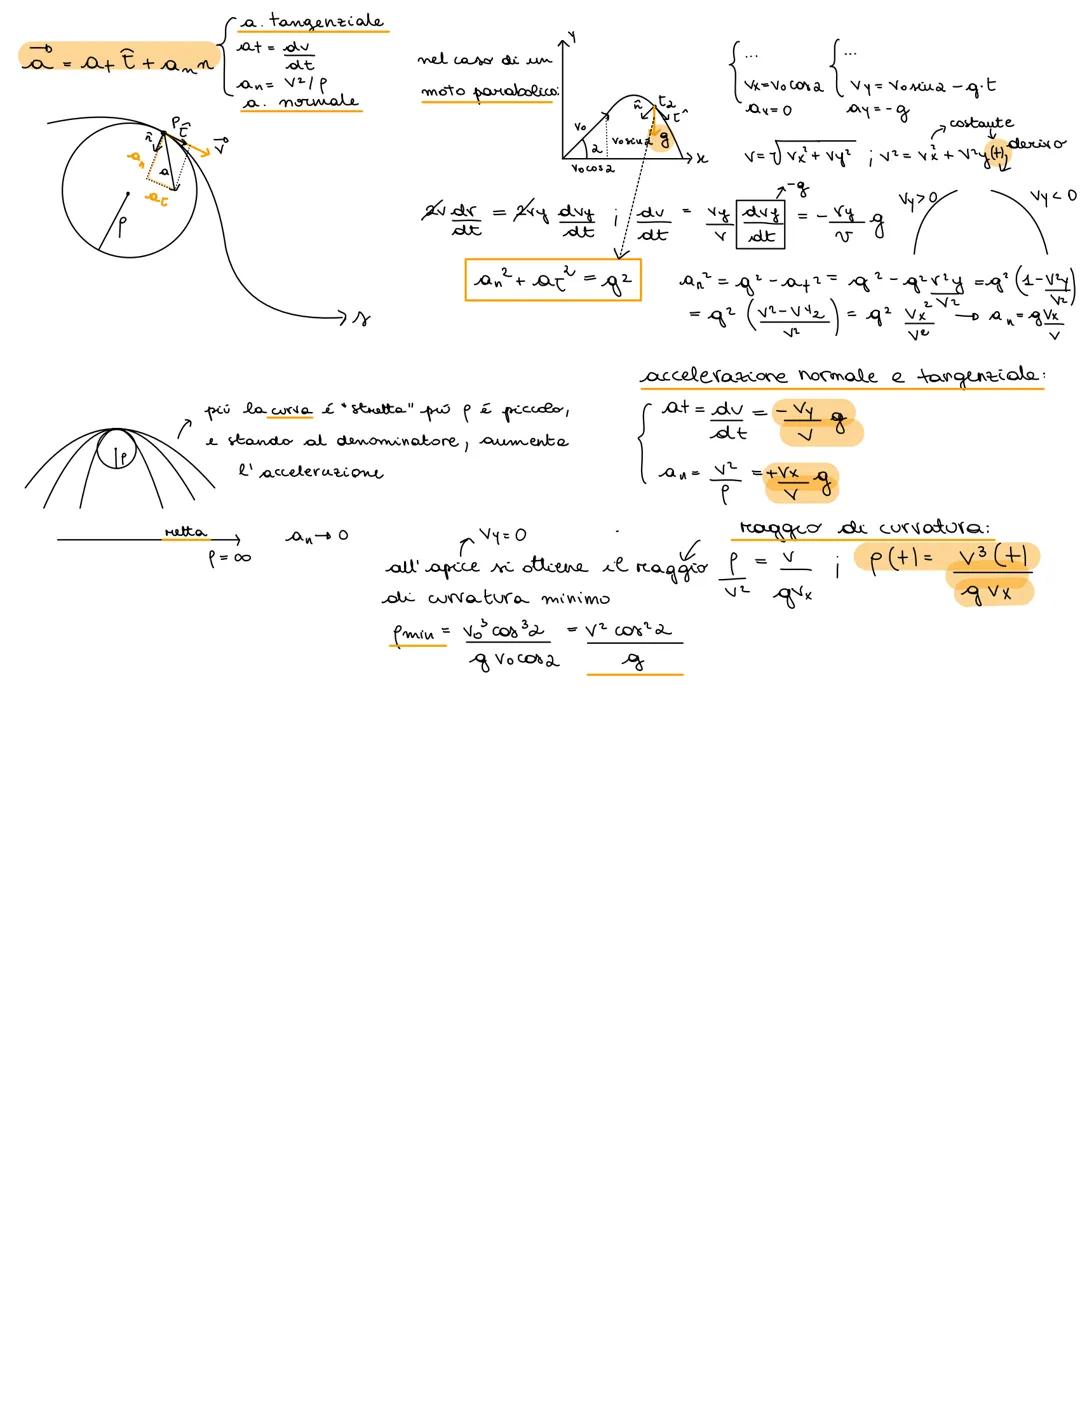 a. tangenziale
a⃗ = at τ̂ + an n
at = dv/dt
an = v²/ρ
a. normale
P τ̂
n̂
v⃗
an
a
aτ
ρ
s
nel caso di un
moto parabolico:
y
n̂ t2
τ̂
v0
v0 sin α
g
α
v0 cos α
x
... ...
vx = v0 cos α vy = v0 sin α - g·t
ax = 0 ay = -g
costante
v = √vx² + vy² ; v² = vx² + v²y(t) derivo
-g
2v dv/dt = 2vy dvy/dt ; dv/dt = vy/v dvy/dt = - vy/v g
vy > 0 vy < 0
an² + aτ² = g²
an² = g² - at² = g² - g² v²y/v² = g² (1 - v²y/v²)
= g² (v² - vy²/v²) = g² vx²/v² → an = g vx/v
accelerazione normale e tangenziale:
at = dv/dt = - vy/v g
an = v²/ρ = + vx/v g
più la curva é "stretta" più ρ é piccolo,
e stando al denominatore, aumenta
l'accelerazione
ρ
retta
ρ = ∞
an → 0
raggio di curvatura:
vy = 0
all'apice si ottiene il raggio
di curvatura minimo
ρ/v² = v/gvx ; ρ(t) = v³(t)/g vx
ρmin = v0³ cos³α/g v0 cos α = v² cos²α/g